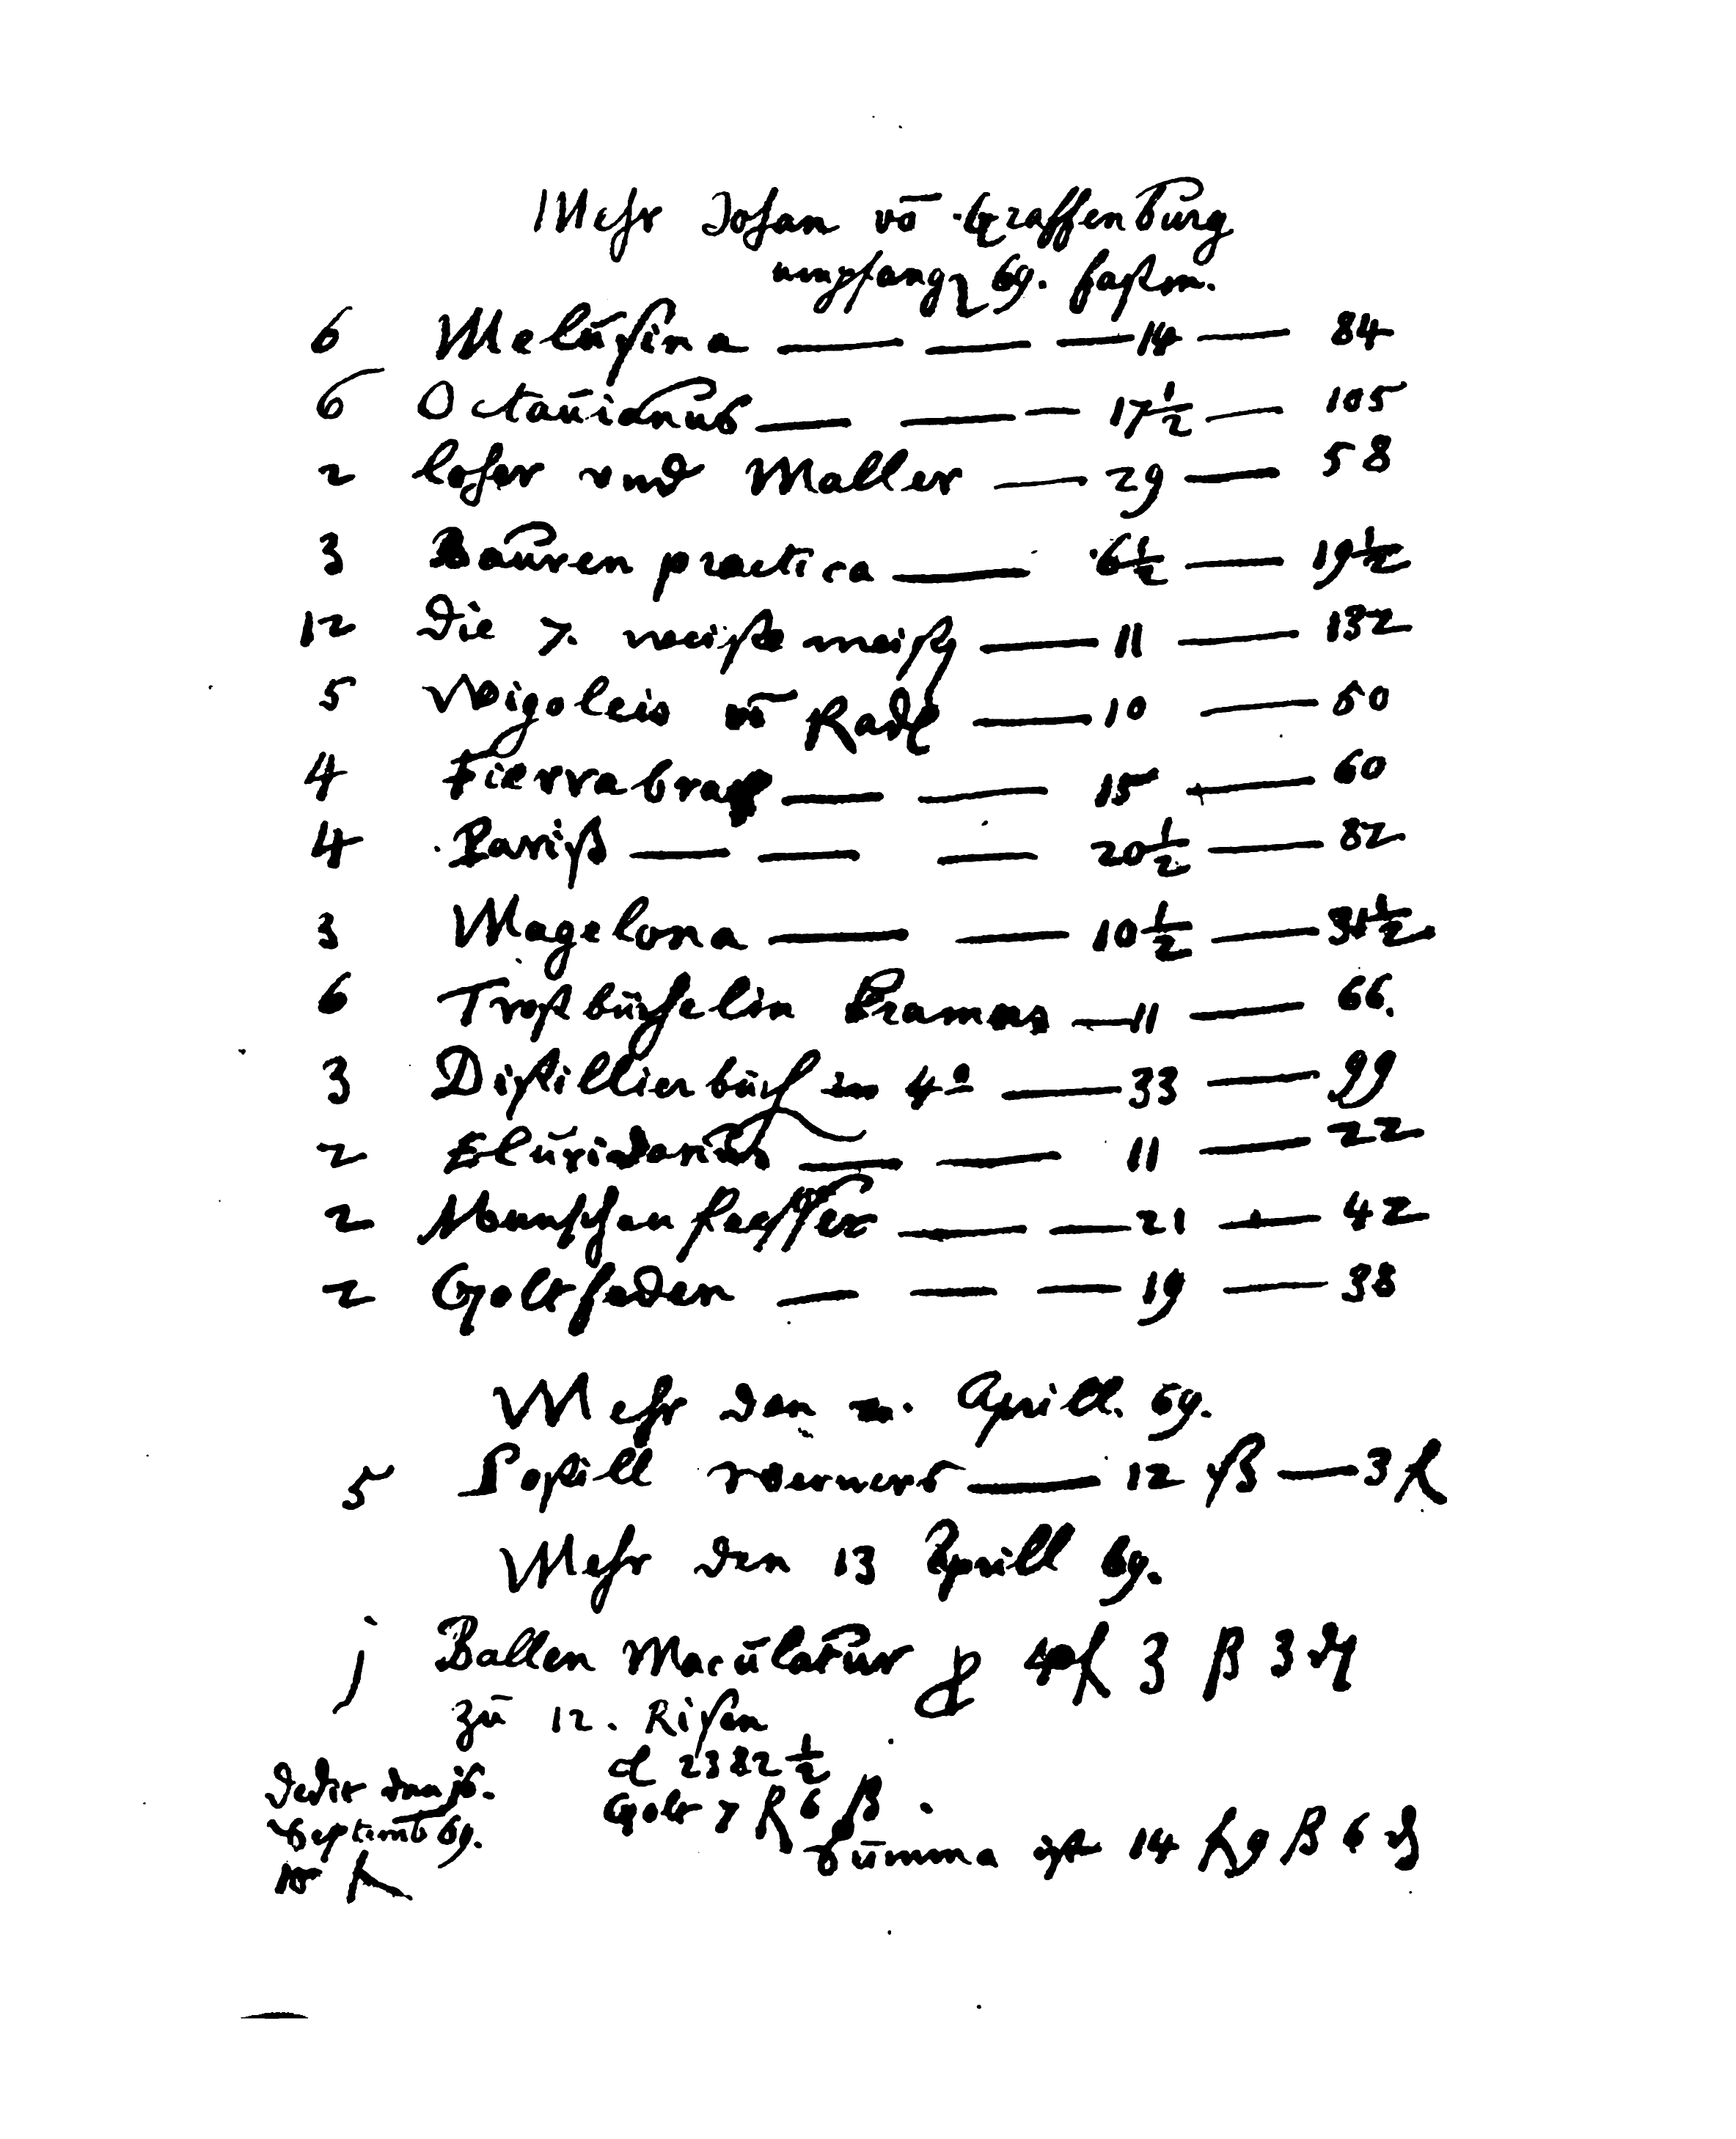 Mehr Johan vō Graffenburg
empfang 69. fastm.
6 Melusina — — — 14 — 84
6 Octauianus — — — 17 1/2 — 105
2 loher vnd Maller — 29 — 58
3 Bauren practica — 6 1/2 — 19 1/2
12 Die 7. weiße meist — 11 — 132
5 Wigoleis vō Rade — 10 — 50
4 Fierrabras — — 15 — 60
4 Pariß — — — 20 1/2 — 82
3 Magelona — — 10 1/2 — 31 1/2
6 Trostbüchelin — 11 — 66.
3 Distillierbuch in 4º — 33 — 99
2 Elucidarius — — 11 — 22
2 — — 21 — 42
2 Goltfaden — — — 19 — 38
Mehr den . Aprill. 69.
5 Postill werners — 12 ß — 3 fl
Mehr den 13 Aprill 69.
j Ballen Maculatur 3 ß 3 ₰
zu 12. Risen
2382 1/2
Golt 7 fl 6 ß .
Dedit den 16.
Septemb 69.
fl
Summa ist 14 fl 9 ß 6 ₰